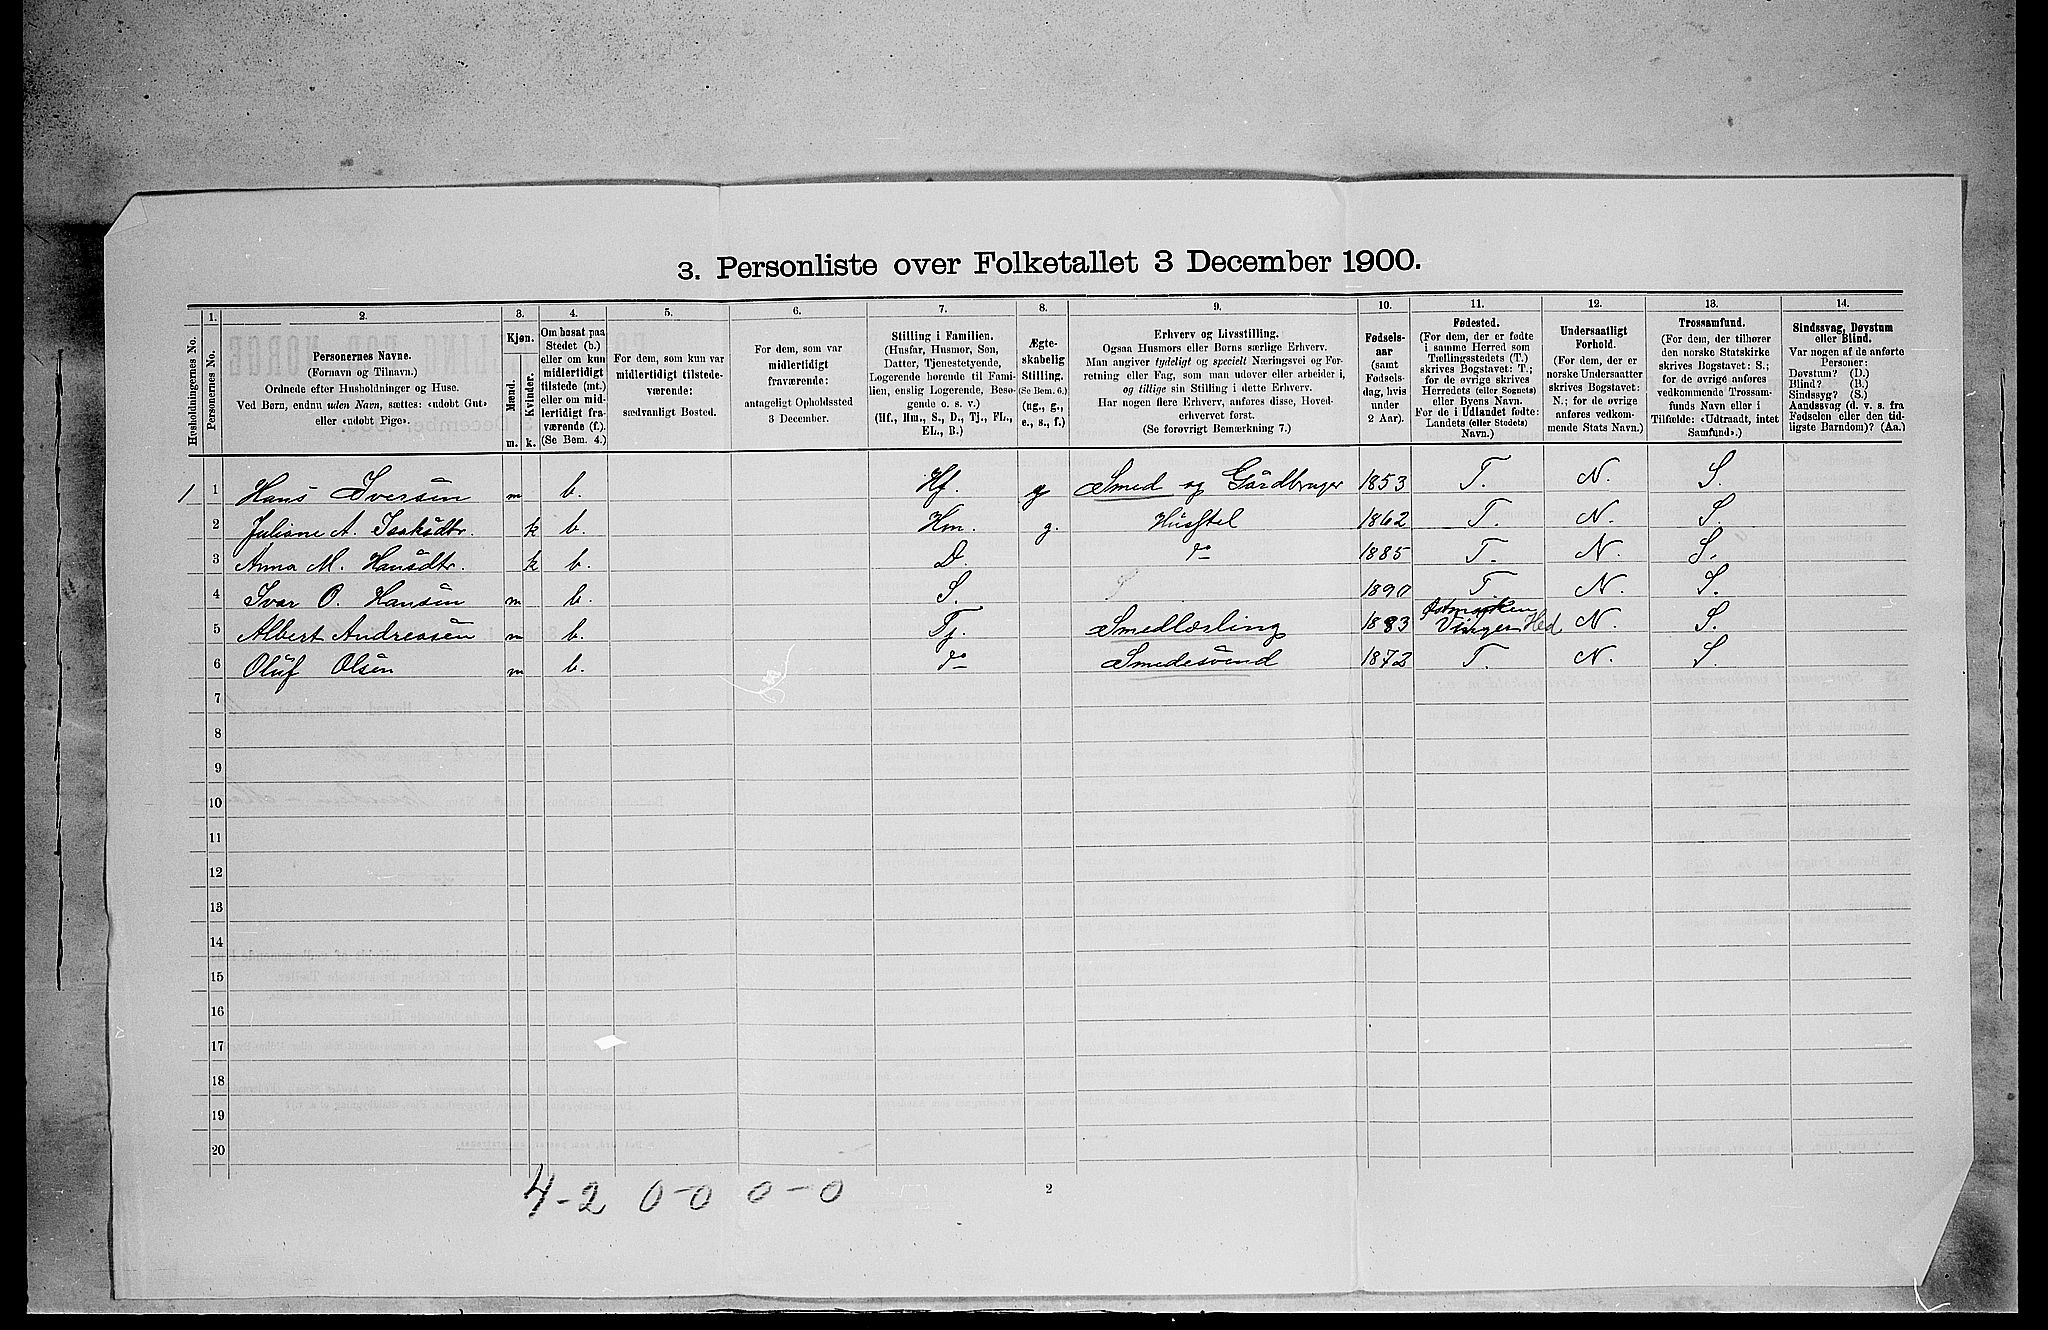 3. Personliste over Folketallet 3 December 1900.
1. 2. 3. 4. 5. 6. 7. 8. 9. 10. 11. 12. 13. 14.
Husholdningernes No.
Personernes No.
Personernes Navne.
(Fornavn og Tilnavn.)
Ordnede efter Husholdninger og Huse.
Ved Børn, endnu uden Navn, sættes: «udobt Gut»
eller «udobt Pige».
Kjøn.
Mænd.
Kvinder.
m. k.
Om bosat paa
Stedet (b.)
eller om kun
midlertidigt
tilstede (mt.)
eller om mid-
lertidigt fra-
værende (f.)
(Se Bem. 4.)
For dem, som kun var
midlertidigt tilstede-
værende:
sædvanligt Bosted.
For dem, som var
midlertidigt
fraværende:
antageligt Opholdssted
3 December.
Stilling i Familien.
(Husfar, Husmor, Søn,
Datter, Tjenestetyende,
Logerende hørende til Fami-
lien, enslig Logerende, Besø-
gende o. s. v.)
(Hf., Hm., S., D., Tj., FL.,
EL., B.)
Ægte-
skabelig
Stilling.
(Se Bem. 6.)
(ug., g.,
e., s., f.)
Erhverv og Livsstilling.
Ogsaa Husmors eller Børns særlige Erhverv.
Man angiver tydeligt og specielt Næringsvei og For-
retning eller Fag, som man udøver eller arbeider i,
og tillige sin Stilling i dette Erhverv.
Har nogen flere Erhverv, anføres disse, Hoved-
erhvervet først.
(Se forøvrigt Bemærkning 7.)
Fødsels-
aar
(samt
Fødsels-
dag, hvis
under
2 Aar).
Fødested.
(For dem, der er fødte
i samme Herred som
Tællingsstedets (T.)
skrives Bogstavet: T.;
for de øvrige skrives
Herredets (eller Sognets)
eller Byens Navn.
For de i Udlandet fødte:
Landets (eller Stedets)
Navn.)
Undersaatligt
Forhold.
(For dem, der er
norske Undersaatter
skrives Bogstavet:
N.; for de øvrige
anføres vedkom-
mende Stats Navn.)
Trossamfund.
(For dem, der tilhører
den norske Statskirke
skrives Bogstavet: S.;
for de øvrige anføres
vedkommende Trossam-
funds Navn eller i
Tilfælde: «Udtraadt, intet
Samfund».)
Sindssvag, Døvstum
eller Blind.
Var nogen af de anførte
Personer:
Døvstum? (D.)
Blind? (B.)
Sindssyg? (S.)
Aandssvag (d. v. s. fra
Fødselen eller den tid-
ligste Barndom)? (Aa.)
1 1 Hans Iversen m b. Hf. g Smed og Gårdbruger 1853 T. N. S.
2 Juliane A. Isaksdtr. k b. Hm. g. Husstel 1862 T. N. S.
3 Anna M. Hansdtr. k b. D. do 1885 T. N. S.
4 Ivar O. Hansen m b. S. 1890 T. N. S.
5 Albert Andreasen m b. Tj. Smedlærling 1883 Østmarken Vinger Hed N. S.
6 Oluf Olsen m b. do Smedesvend 1872 T. N. S.
7
8
9
10
11
12
13
14
15
16
17
18
19
20
4-2 0-0 0-0
2